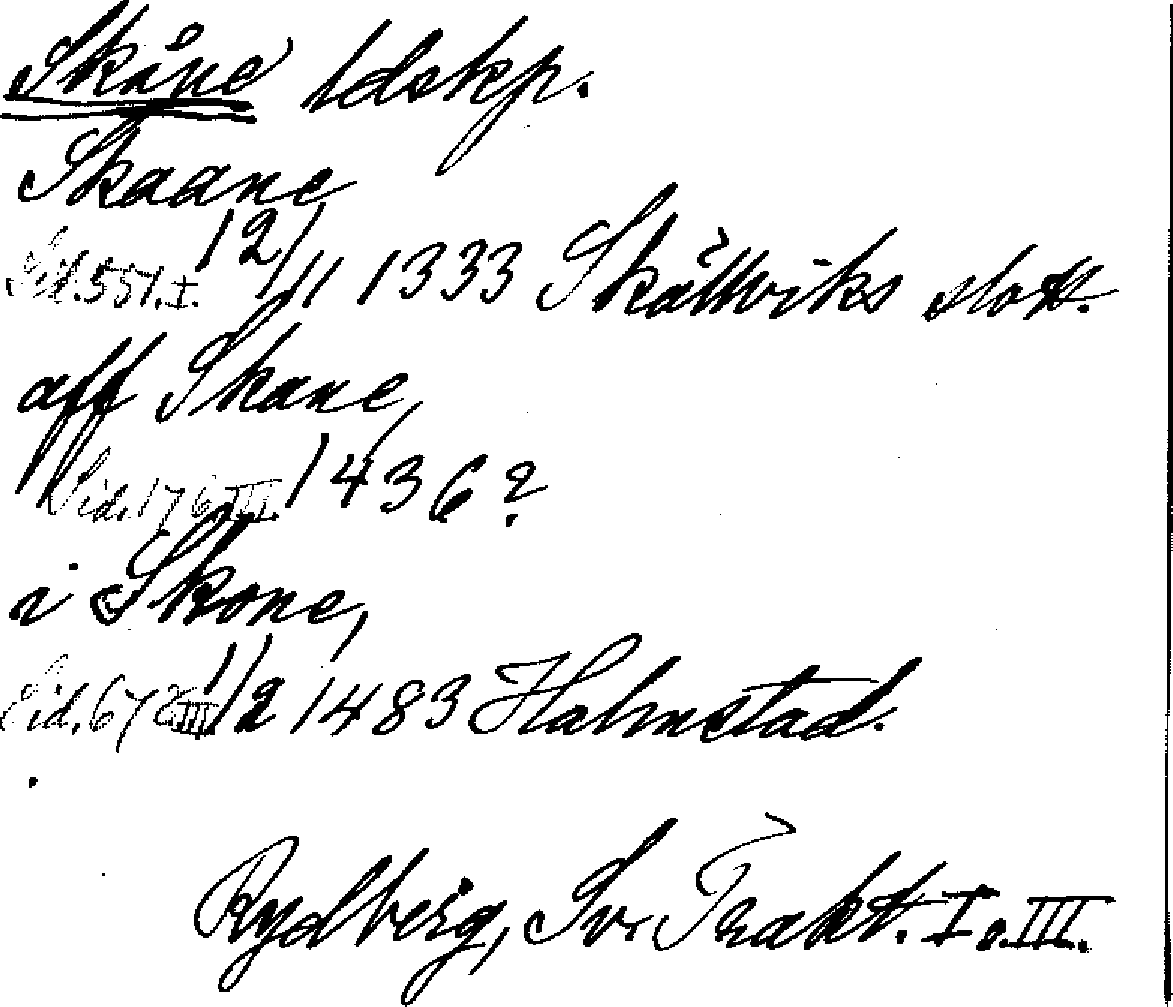 Skåne ldskp.
Skaane
Sid. 551. I. 12/11 1333 Skällviks slott.
aff Skane,
Sid. 176 III. 1436?
i Skone,
Sid. 672 III 1/2 1483 Halmstad.
Rydberg, Sv. Trakt. I o. III.